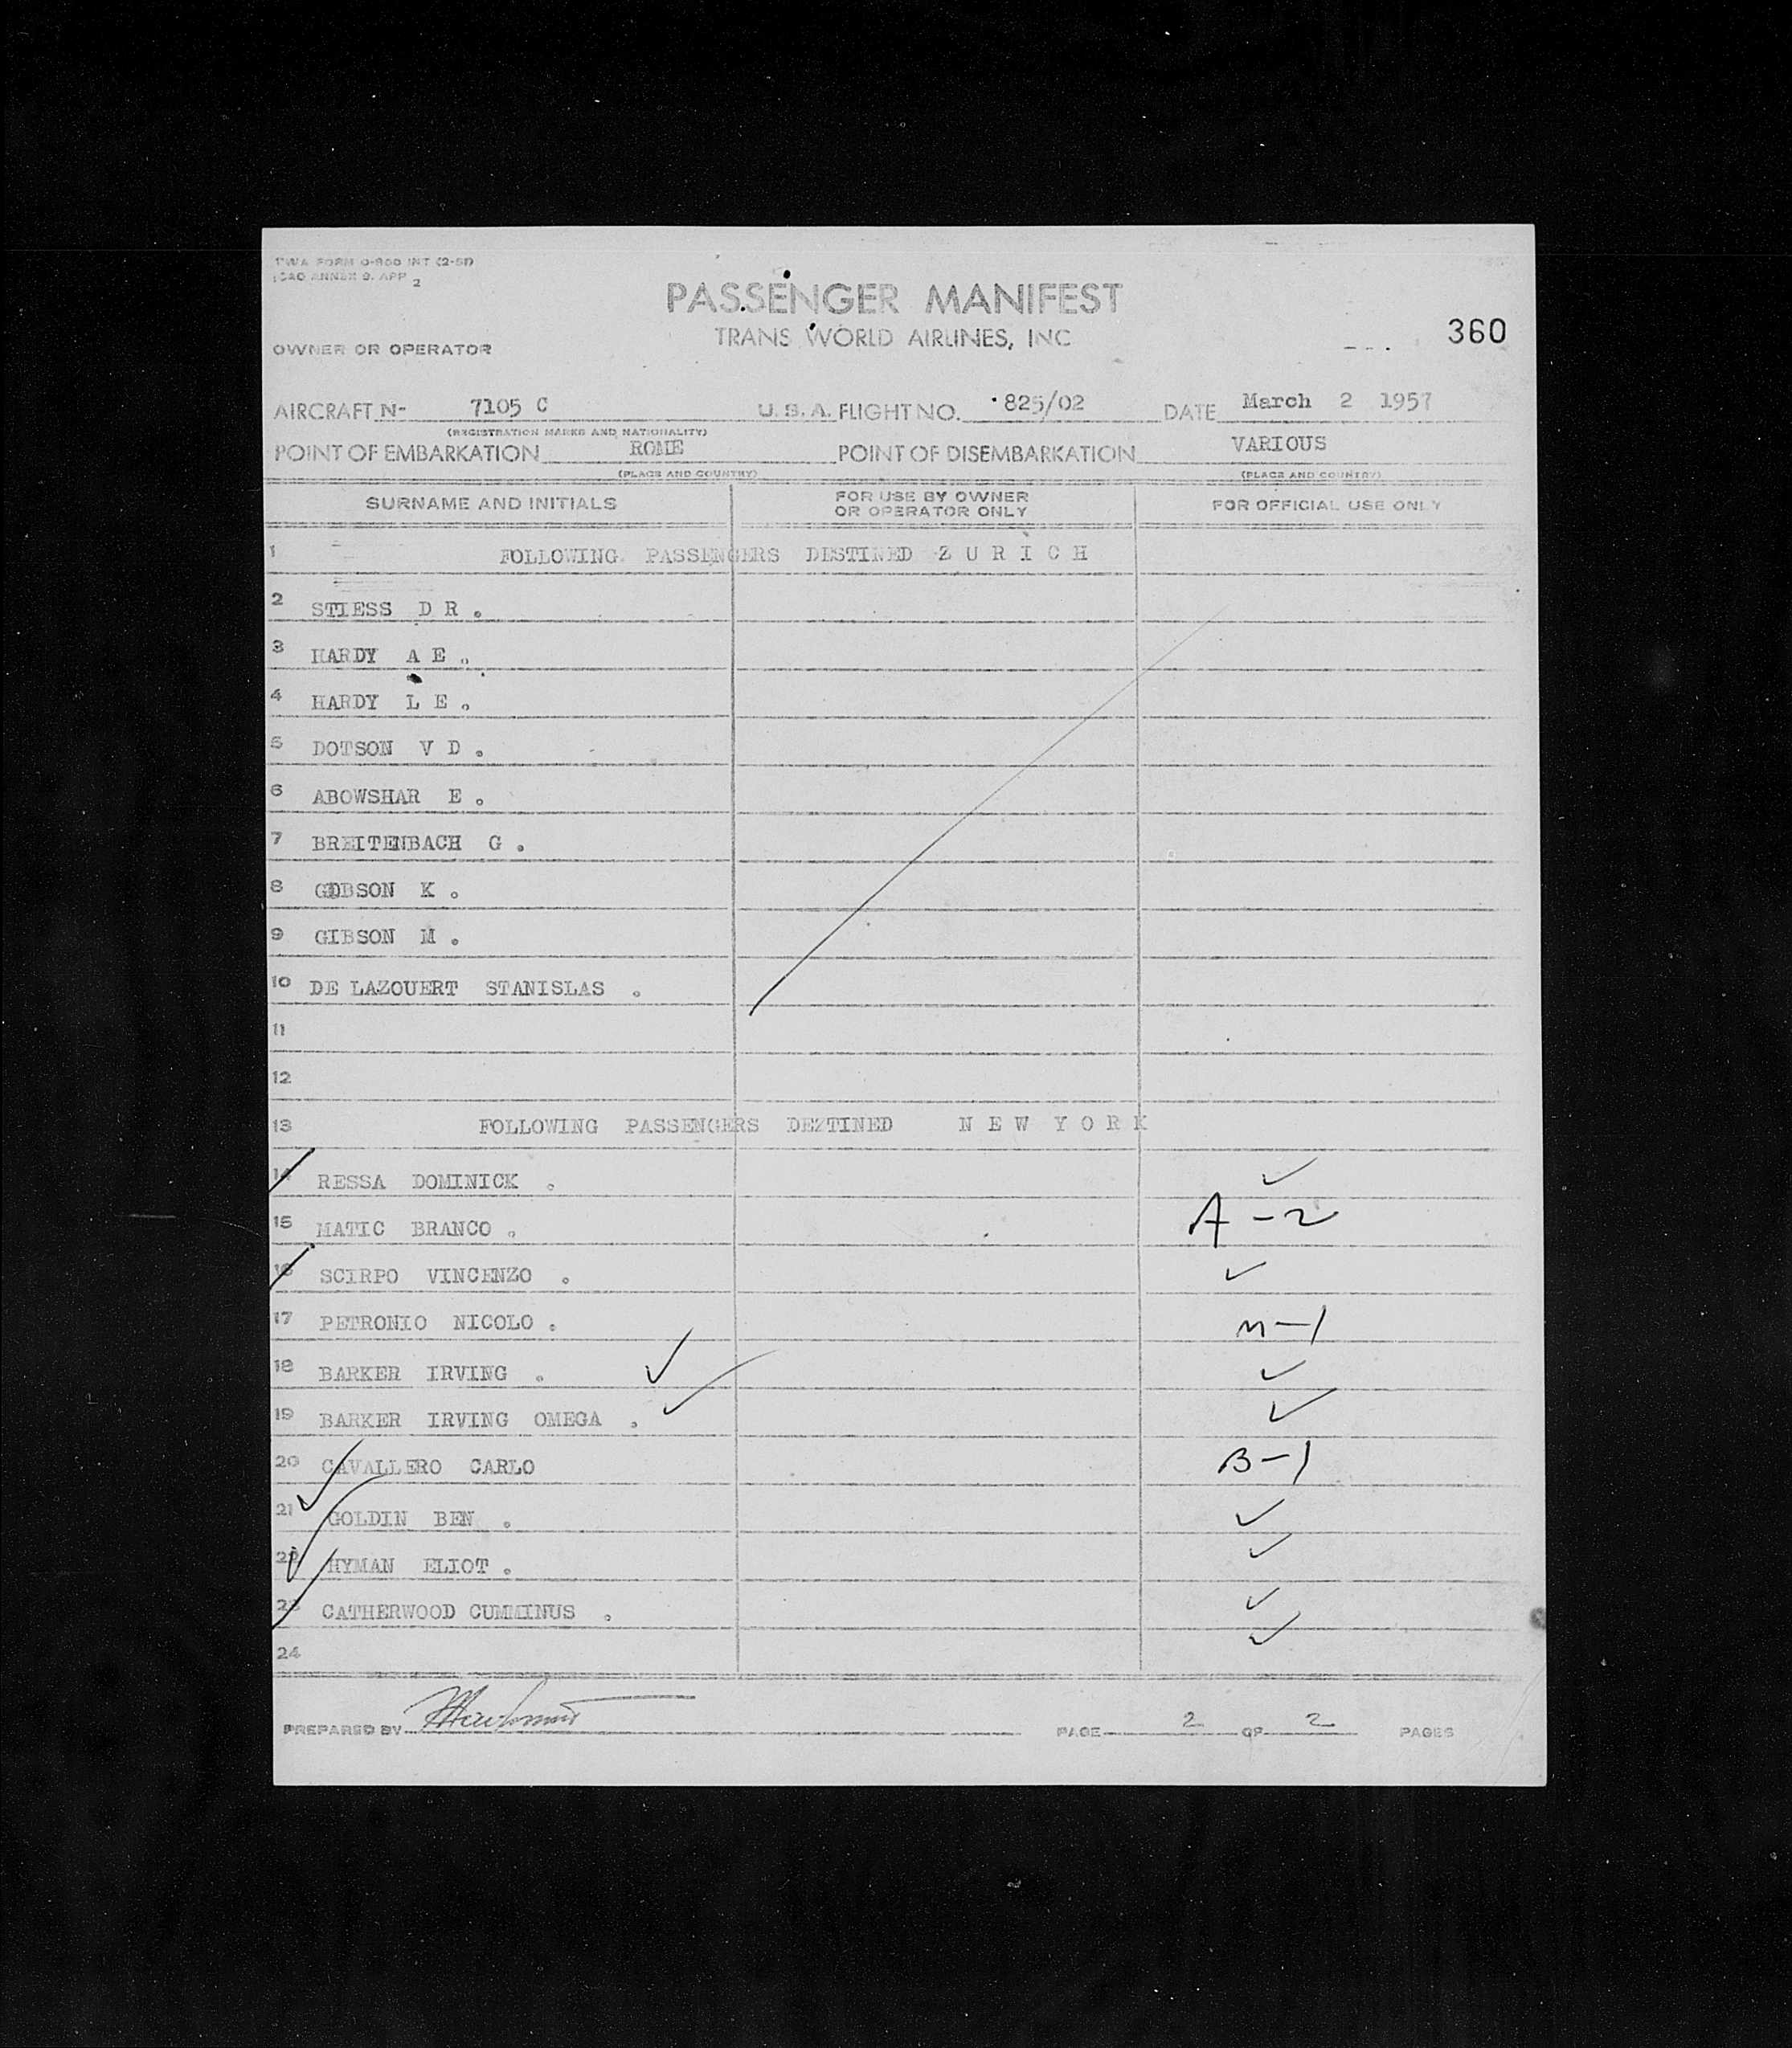 TWA FORM O-800 INT (2-51)
ICAO ANNEX 9. APP 2
PASSENGER MANIFEST
TRANS WORLD AIRLINES, INC
360
OWNER OR OPERATOR
AIRCRAFT N- 7105 C U. S. A. FLIGHT NO. 825/02 DATE March 2 1957
(REGISTRATION MARKS AND NATIONALITY)
POINT OF EMBARKATION ROME POINT OF DISEMBARKATION VARIOUS
(PLACE AND COUNTRY) (PLACE AND COUNTRY)
SURNAME AND INITIALS FOR USE BY OWNER OR OPERATOR ONLY FOR OFFICIAL USE ONLY
1 FOLLOWING PASSENGERS DESTINED Z U R I C H
2 STIESS D R .
3 HARDY A E .
4 HARDY L E .
5 DOTSON V D .
6 ABOWSHAR E .
7 BREITENBACH G .
8 GIBSON K .
9 GIBSON M .
10 DE LAZOUERT STANISLAS .
11
12
13 FOLLOWING PASSENGERS DEZTINED N E W Y O R K
14 RESSA DOMINICK . ✓
15 MATIC BRANCO . A-2
16 SCIRPO VINCENZO . ✓
17 PETRONIO NICOLO . M-1
18 BARKER IRVING . ✓ ✓
19 BARKER IRVING OMEGA . ✓ ✓
20 CAVALLERO CARLO B-1
21 GOLDIN BEN . ✓
22 HYMAN ELIOT . ✓
23 CATHERWOOD CUMMINUS . ✓
24 ✓
PREPARED BY PAGE 2 OF 2 PAGES